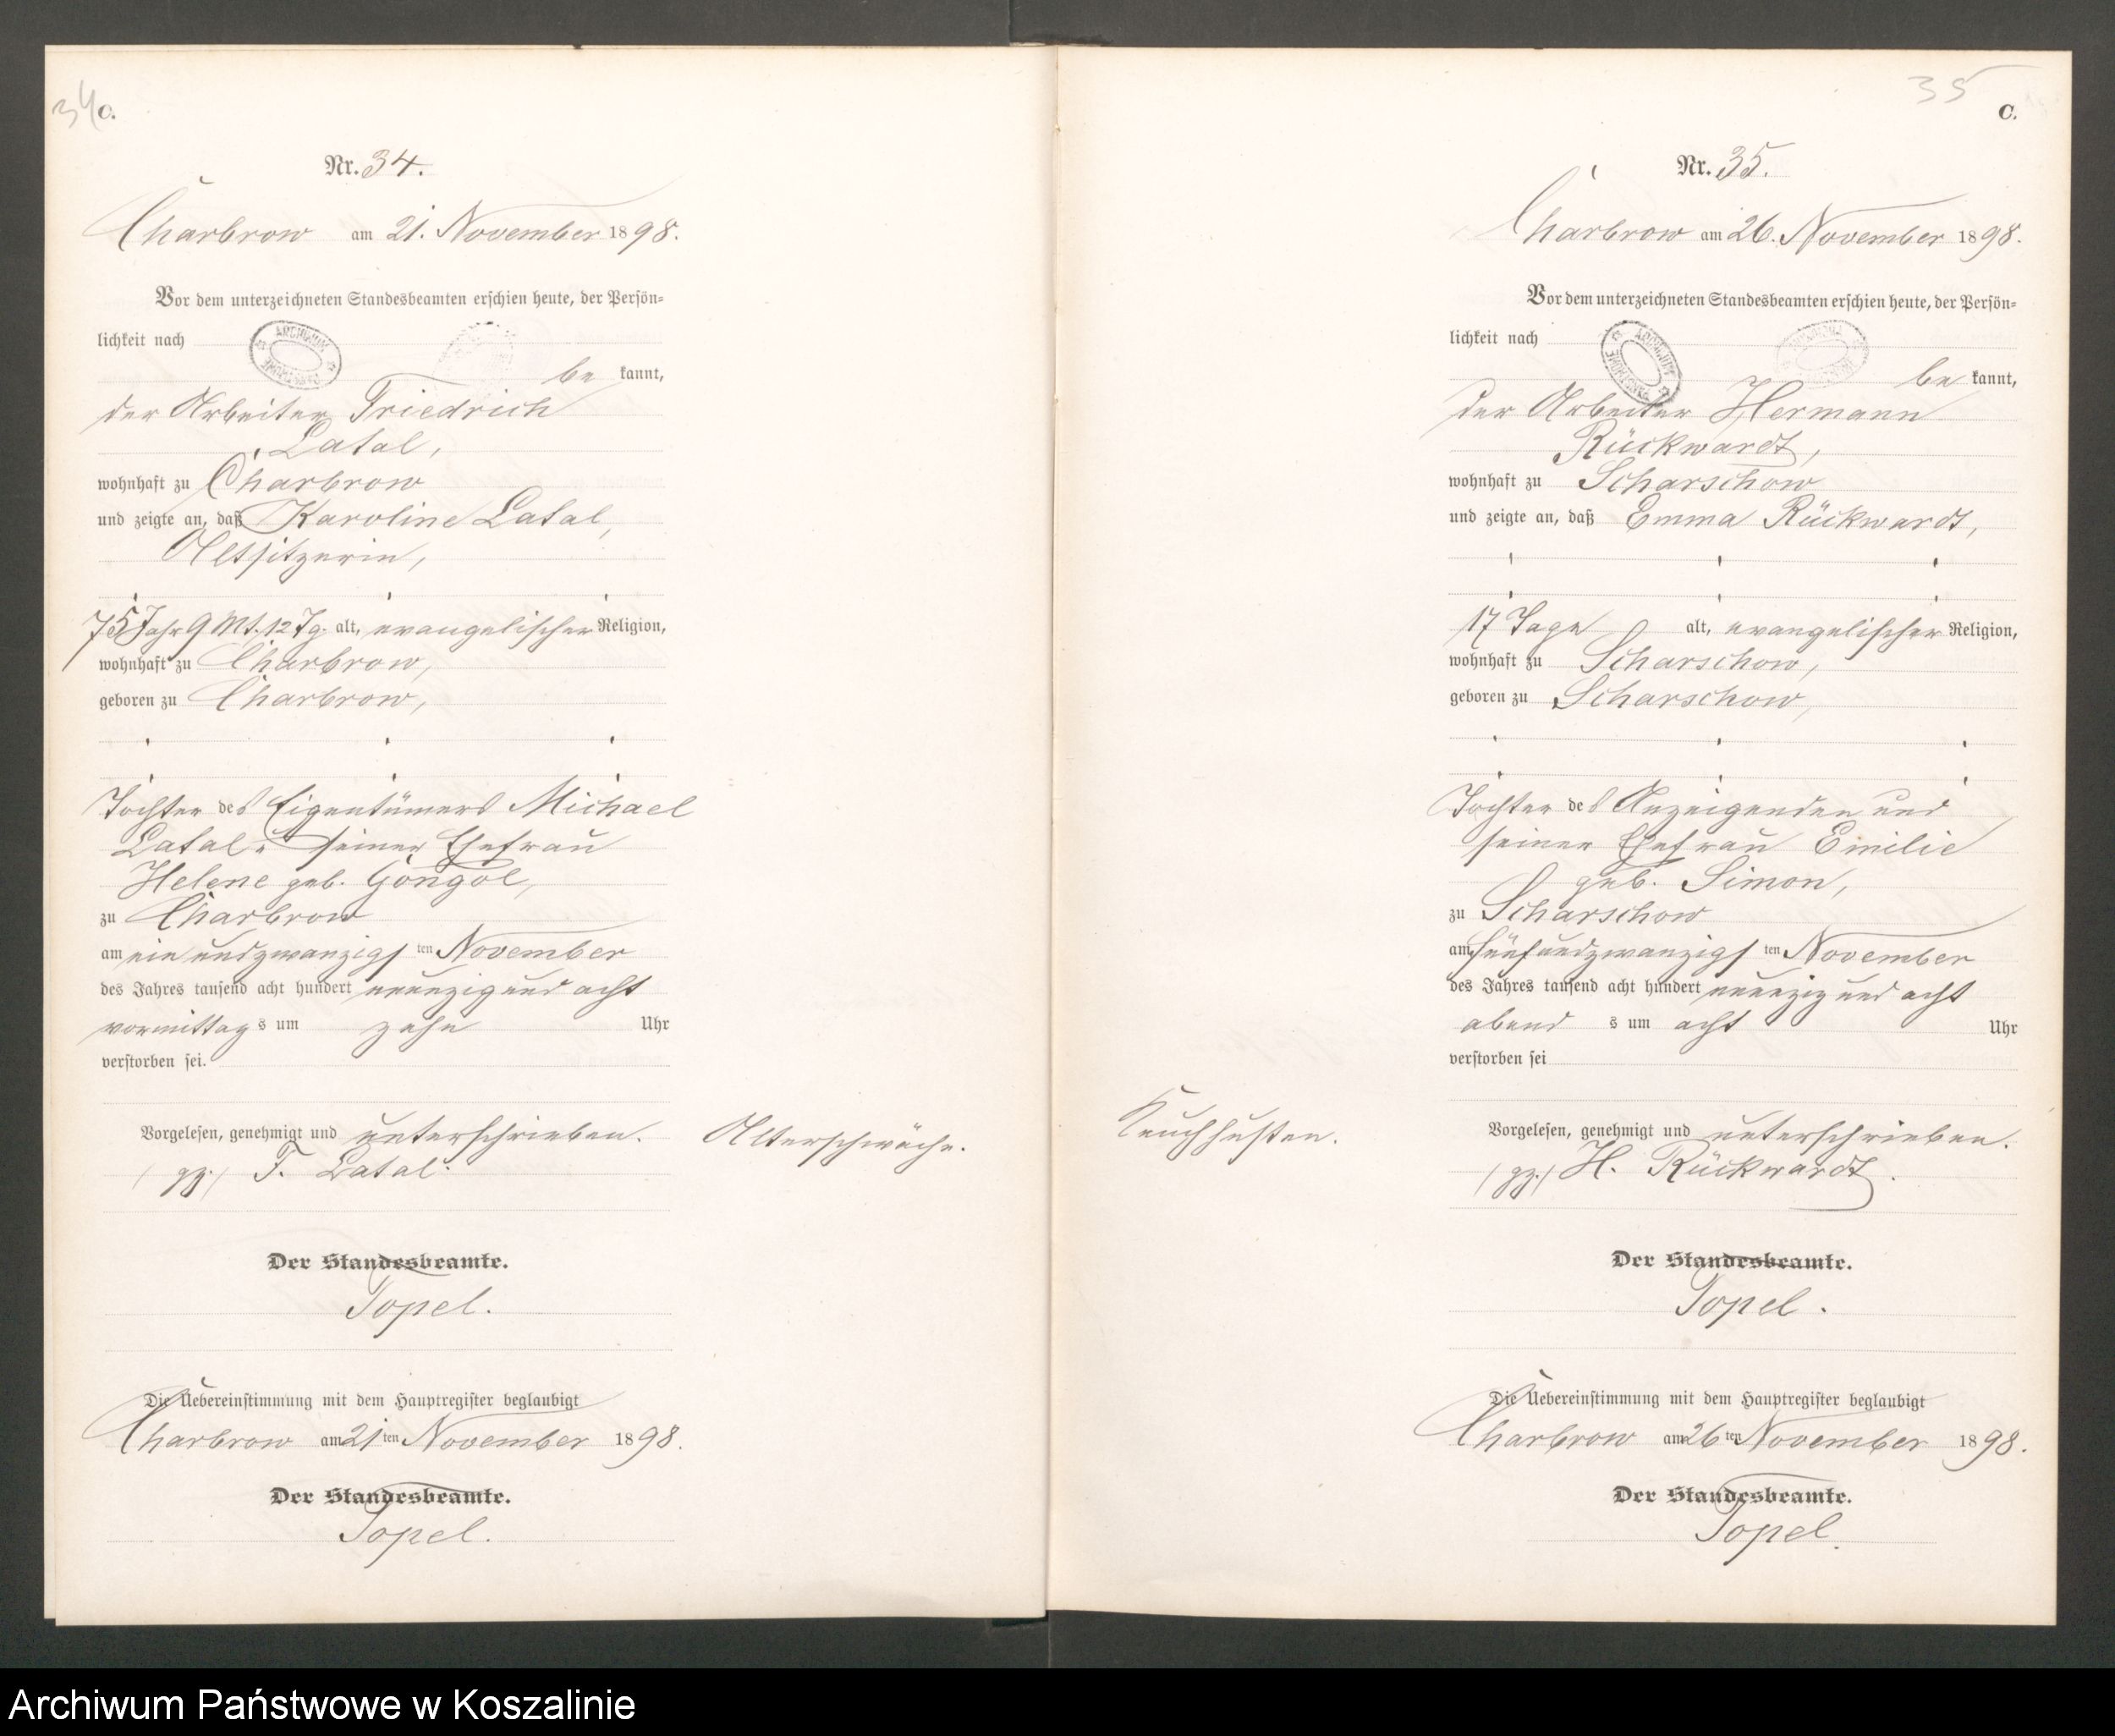 34
C.
Nr. 34.
Charbrow am 21. November 1898.
Vor dem unterzeichneten Standesbeamten erschien heute, der Persön-
lichkeit nach
ARCHIWUM PAŃSTWOWE
be kannt,
der Arbeiter Friedrich
Latal,
wohnhaft zu Charbrow
und zeigte an, daß Karoline Latal,
Altsitzerin,
75 Jahr 9 Mt. 12 Tg. alt, evangelischer Religion,
wohnhaft zu Charbrow,
geboren zu Charbrow,
Tochter des Eigentümers Michael
Latal u. seiner Ehefrau
Helene geb. Gongol,
zu Charbrow
am ein und zwanzigs ten November
des Jahres tausend acht hundert neunzig und acht
vormittag s um zehn Uhr
verstorben sei.
Vorgelesen, genehmigt und unterschrieben.
(gz.) F. Latal.
Alterschwäche.
Der Standesbeamte.
Topel.
Die Uebereinstimmung mit dem Hauptregister beglaubigt
Charbrow am 21 ten November 1898.
Der Standesbeamte.
Topel.
35
C.
Nr. 35.
Charbrow am 26. November 1898.
Vor dem unterzeichneten Standesbeamten erschien heute, der Persön-
lichkeit nach
ARCHIWUM PAŃSTWOWE
be kannt,
der Arbeiter Hermann
Rückwardt,
wohnhaft zu Scharschow
und zeigte an, daß Emma Rückwardt,
17 Tage alt, evangelischer Religion,
wohnhaft zu Scharschow,
geboren zu Scharschow,
Tochter des Anzeigenden und
seiner Ehefrau Emilie
geb. Simon,
zu Scharschow
am fünfundzwanzigs ten November
des Jahres tausend acht hundert neunzig und acht
abend s um acht Uhr
verstorben sei
Keuchhusten.
Vorgelesen, genehmigt und unterschrieben.
(gz.) H. Rückwardt.
Der Standesbeamte.
Topel.
Die Uebereinstimmung mit dem Hauptregister beglaubigt
Charbrow am 26 ten November 1898.
Der Standesbeamte.
Topel.
Archiwum Państwowe w Koszalinie